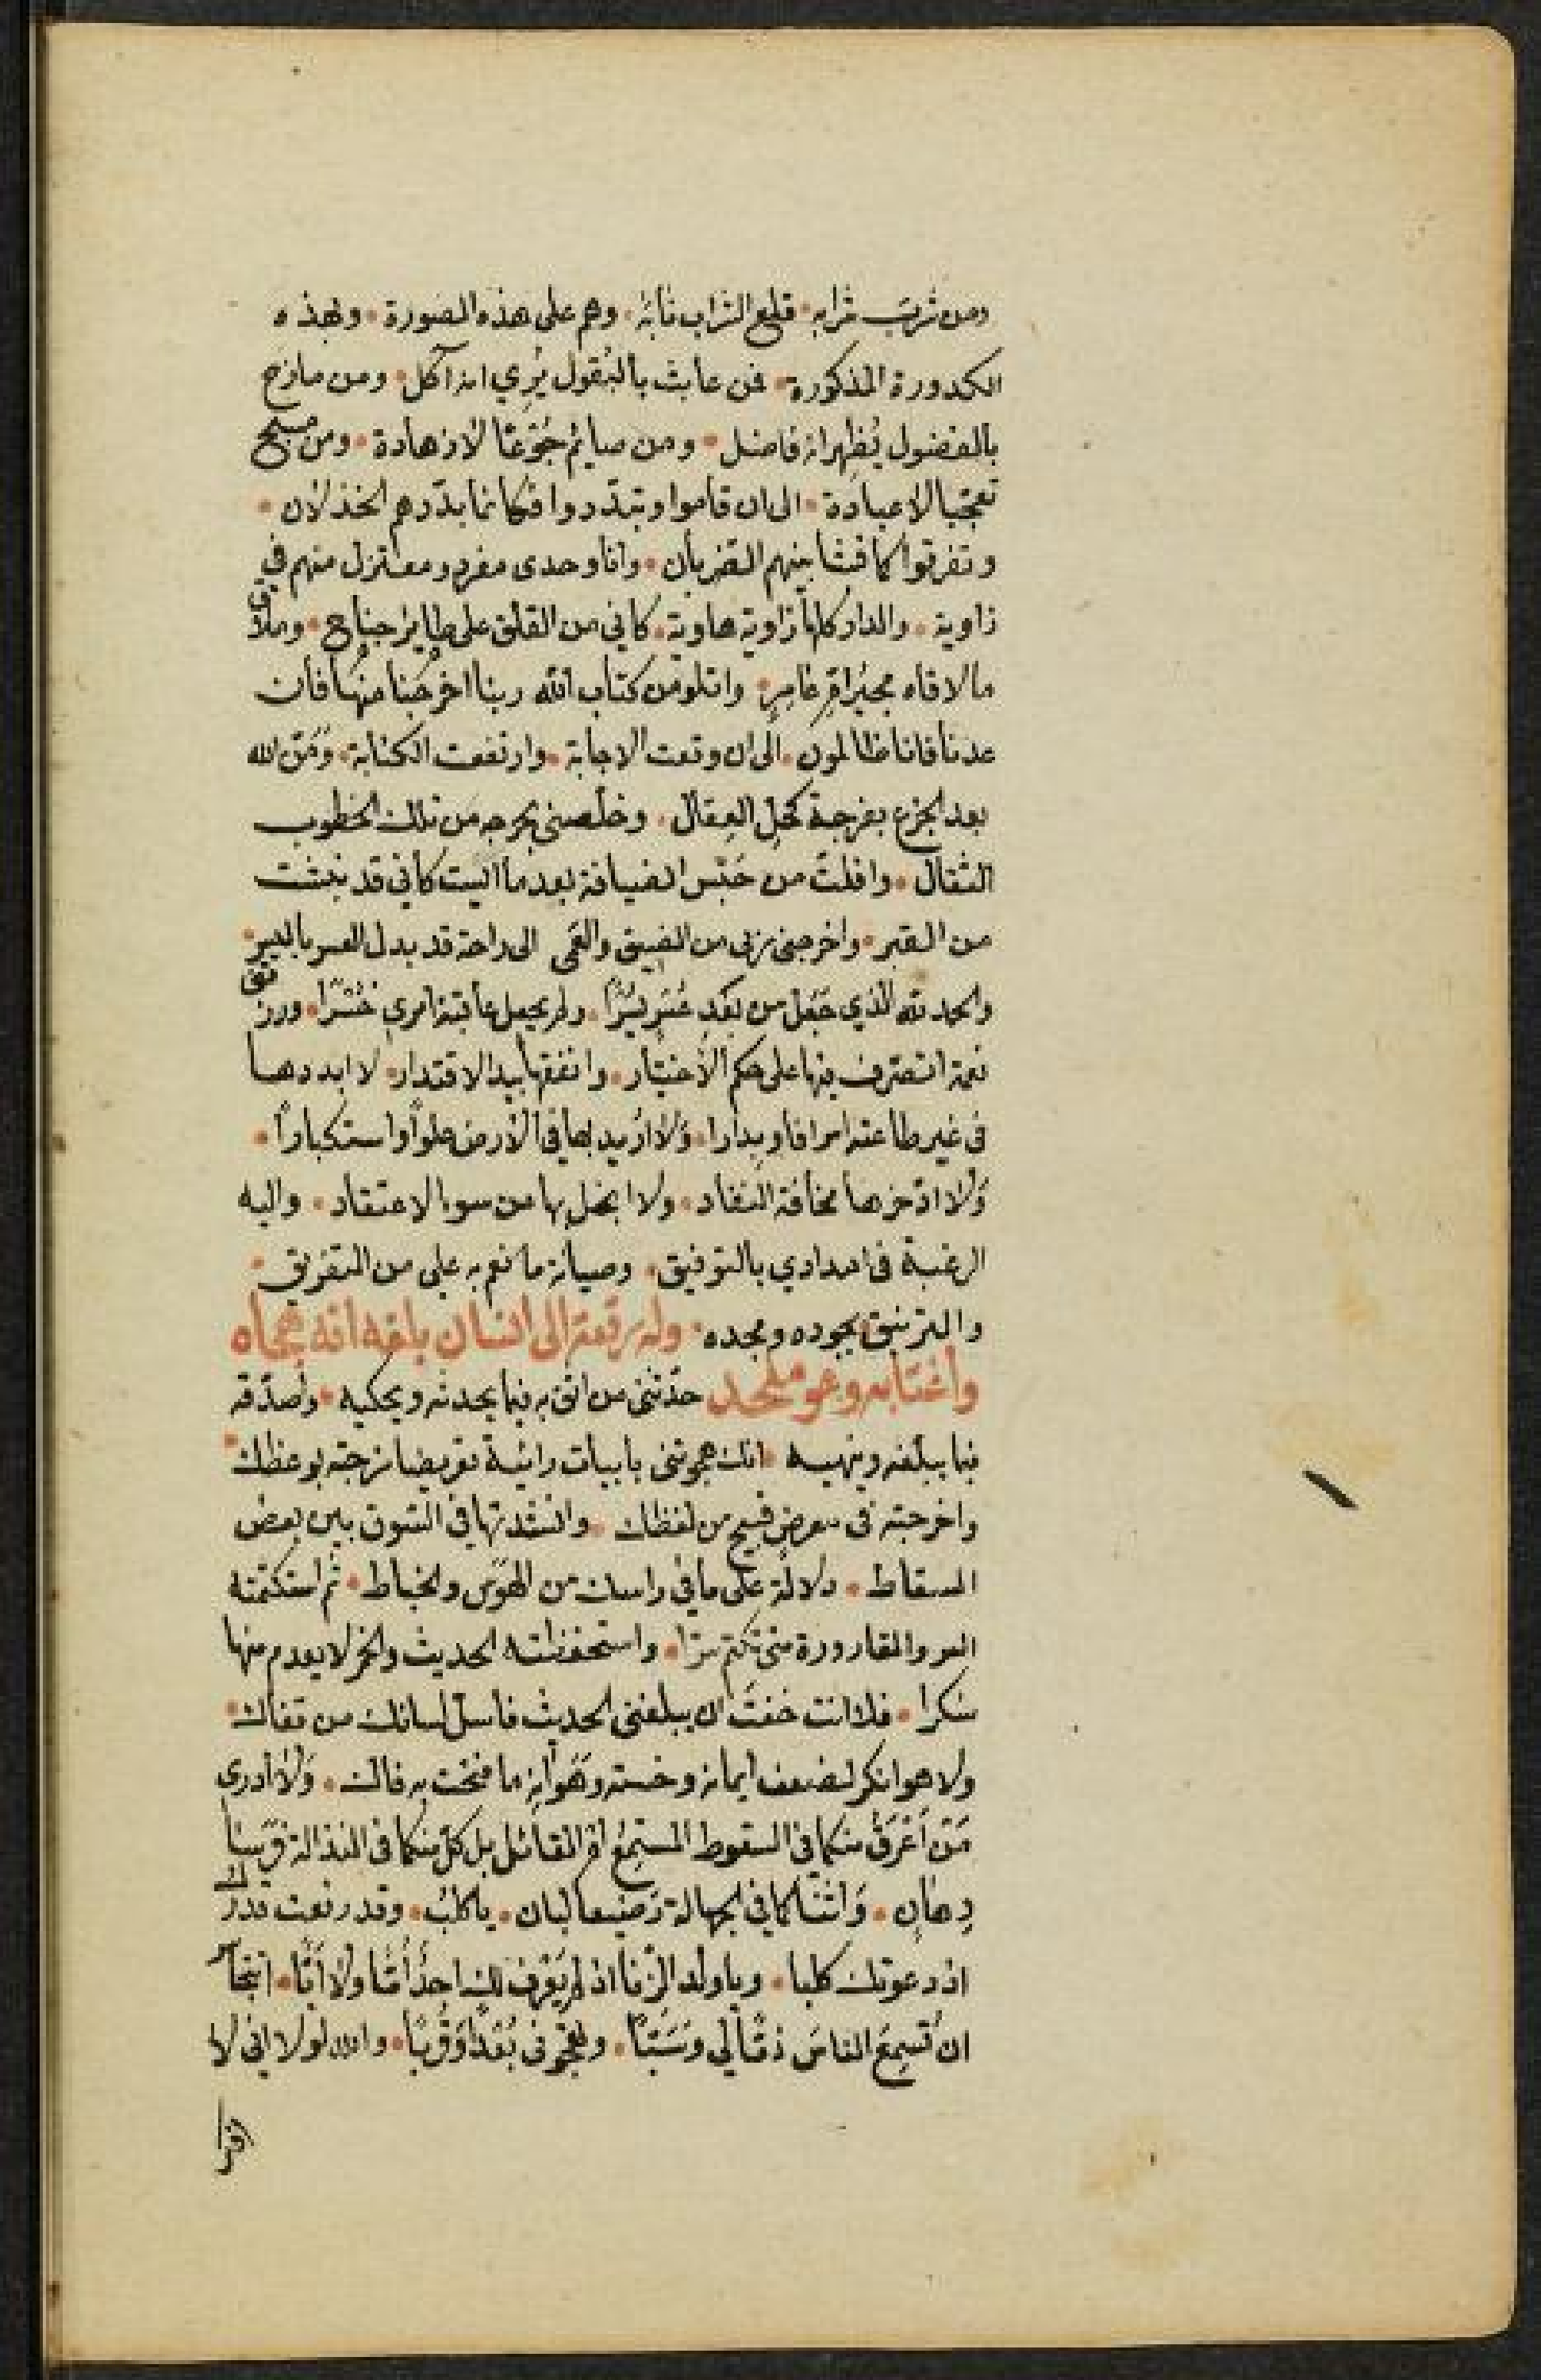 ومن شربت شرابه • قلع التراب نابه • وهم على هذه الصورة • وبهذه
الكدورة المذكورة • فمن عابث بالبقول يُري انه آكل • ومن مازح
بالفضول يُظهر انه فاضل • ومن صايم جُوْعًا لا زهادة • ومن مسبح
تعجبا لا عبادة • الى ان قاموا وتبدّدوا فكانما بدّدهم الخذلان •
وتفرقوا كما فشا بينهم الضربان • وانا وحدى مفرد ومعتزل منهم في
زاوية • والدار كلها زاوية هاوية • كاني من القلق على طاير جناح • وملاقى
ما لاقاه مجيرام عامر • واتلو من كتاب الله ربنا اخرجنا منها فان
عدنا فانا ظالمون • الى ان وقعت الاجابة • وارتفعت الكئابة • ومَنّ الله
بعد الجزع بفرجة كحل العقال • وخلصنى بخرجه من تلك الخطوب
الثقال • وافلتّ من حَبْس الضيافة بعد ما اليت كأنى قد بعثت
من القبر • واخرجنى ربى من الضيق والغمى الى راحة قد بدل العسر باليسر •
والحمد لله الذي جَعَل من بَعْدِ عُسْرٍ يُسْرًا • ولم يجعل عاقبة امري خُسْرًا • ورزقنى
نعمة اتصرف فيها على حكم الاختيار • وانفقها بيد الاقتدار • لا ابددها
فى غير طاعته اسرافا وبدارا • وَلَا اريد بها فى الارض علواً واستكباراً •
وَلَا ادّخرها مخافة النفاد • ولا ابخل بها من سوء الاعتقاد • واليه
الرغبة فى امدادي بالتوفيق • وصيانة ما نعم به علي من التفريق •
والترنيق بجوده ومجده • وله رقعة الى انسان بلغه انه هجاه
واغتابه وهو ملحد حدّثنى من اثق به فيما يحدثه ويحكيه • واصدّقه
فيما يبلّغه وينهيه • انك هجوتنى بابيات رائية تعريضا مزجته بوعظك •
واخرجته فى معرض قبيح من لفظك • وانشدتها فى السوق بين بعض
السقاط • دلالة على ما فى راسك من الهوَس والخباط • ثم استكتمته
السر والقارورة متى تكتم سرّا • واستحفظته الحديث والخمر لا يعدم منها
سكرا • فلا انت خفت ان يبلغنى الحديث فاسل لسانك من قفاك •
ولا هو انكر لضعف ايمانه وخسته وهَوَانِه ما فتحت به فاك • وَلَا ادرى
مَنْ اَعْرَقُ منكما فى السقوط المستمِعُ امِ القائل بل كلّ منكما فى النذالة فَرَسا
رِهَانٍ • وَانتما فى الجهالة رَضيعا لبان • يا كلبُ • وقد رفعت قدرك
اذ دعوتك كلبا • ويا ولد الزنا اذ لم يَعْرِف لك احدٌ اُمًّا ولا اَبًا •
ان تُسمِعَ الناسَ ذمًّا لي وَسَبّاً • وتهجونى بُعْدًا وَقُرْبًا • والله لولا انى لا